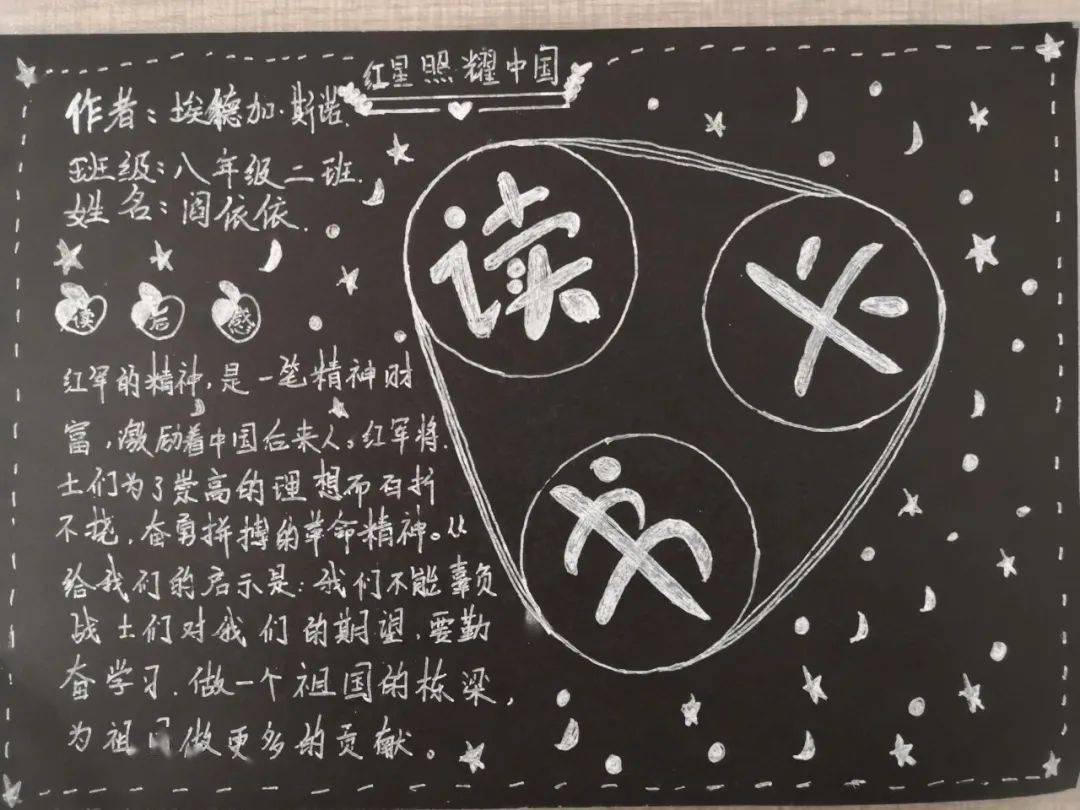 红星照耀中国
作者：埃德加·斯诺.
班级：八年级二班.
姓名：阎依依.
读后感
红军的精神，是一笔精神财
富，激励着中国后来人。红军将
士们为了崇高的理想而百折
不挠，奋勇拼搏的革命精神。从
给我们的启示是：我们不能辜负
战士们对我们的期望，要勤
奋学习，做一个祖国的栋梁，
为祖国做更多的贡献。
读
书